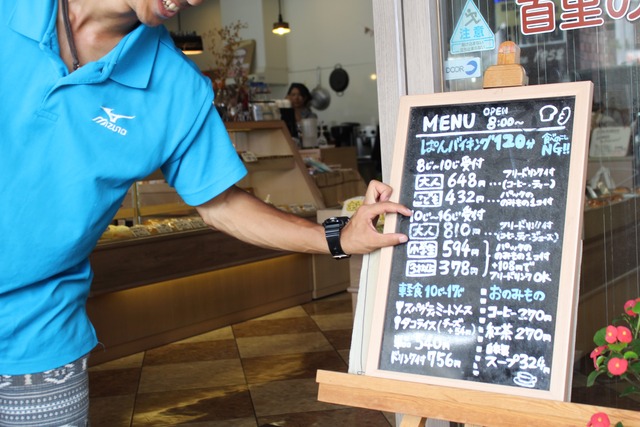 注意
首里の
MIZUNO
MENU OPEN 8:00〜
ぱんバイキング120分 NG!!
8じ〜10じ受付
大人 648円 … フリードリンク付(コーヒー、ティー)
こども 432円 … パックののみもの1コ付
10じ〜16じ受付
大人 810円 … フリードリンク付(コーヒー、ティー、ジュース)
小学生 594円
378円
パックののみもの1コ付
+108円でフリードリンクOK
軽食 10じ〜17じ
スパゲティミートソース
タコライス(チーズ
540円
ドリンク付 756円
おのみもの
コーヒー 270円
紅茶 270円
スープ 324円